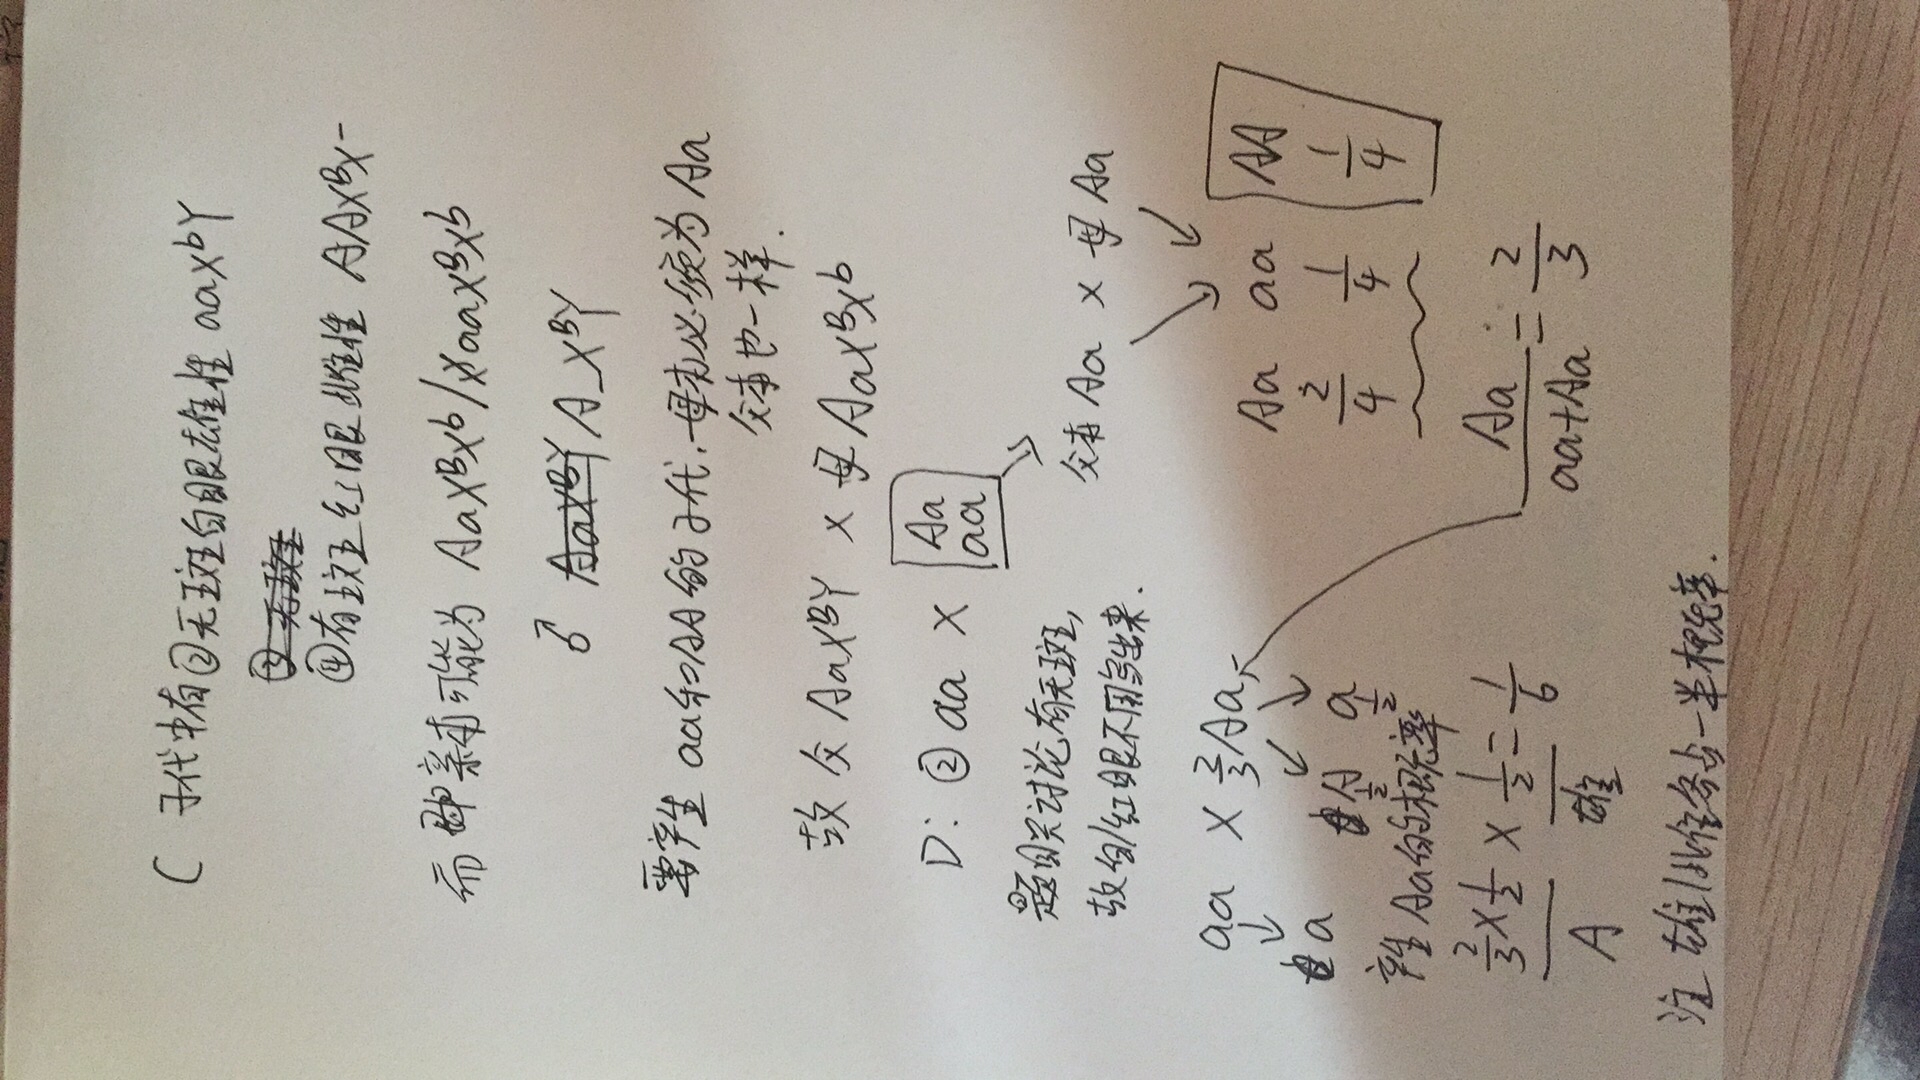 C 子代中有②无斑白眼雄性 aaXbY
③ 无斑
④有斑红眼雌性 AAXBX-
而 即亲本可能为 AaXBXb/XaaXBXb
♂ AaXBY A_XBY
要产生 aa和AA的子代,母本必须为 Aa
父本也一样.
故 父 AaXBY × 母 AaXBXb
D: ② aa × Aa
aa
题目只讨论有无斑,
故白/红眼不用写出来.
父本 Aa × 母 Aa
aa × 2/3 Aa
a A 1/2 a 1/2
Aa aa AA
2/4 1/4 1/4
产生 Aa的概率
2/3×1/2 × 1/2 = 1/6
A 雄
Aa/aa+Aa = 2/3
注 雄/雌各占一半概率.